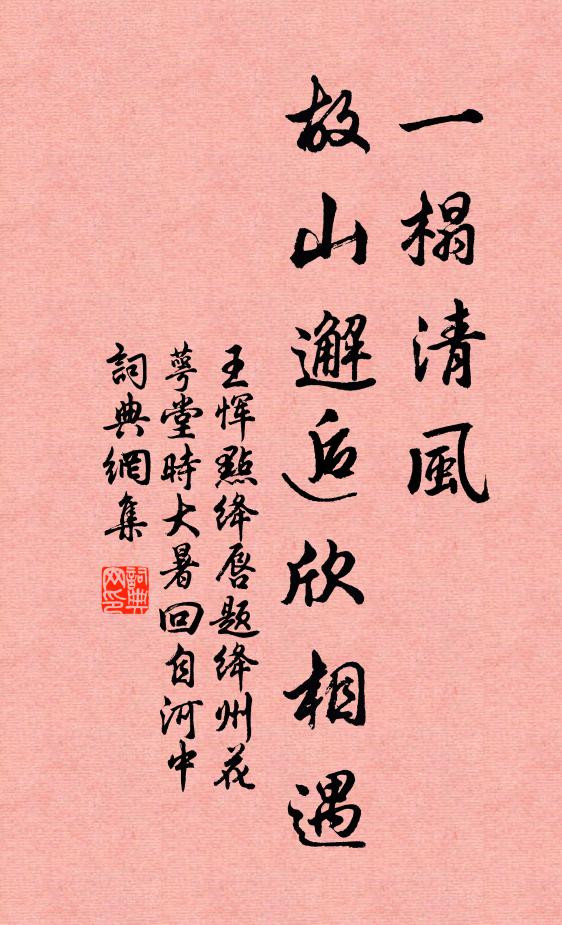 一榻清風
故山邂逅欣相遇
王惲點絳唇題絳州花
萼堂時大暑回自河中
詞典網集
詞典網印